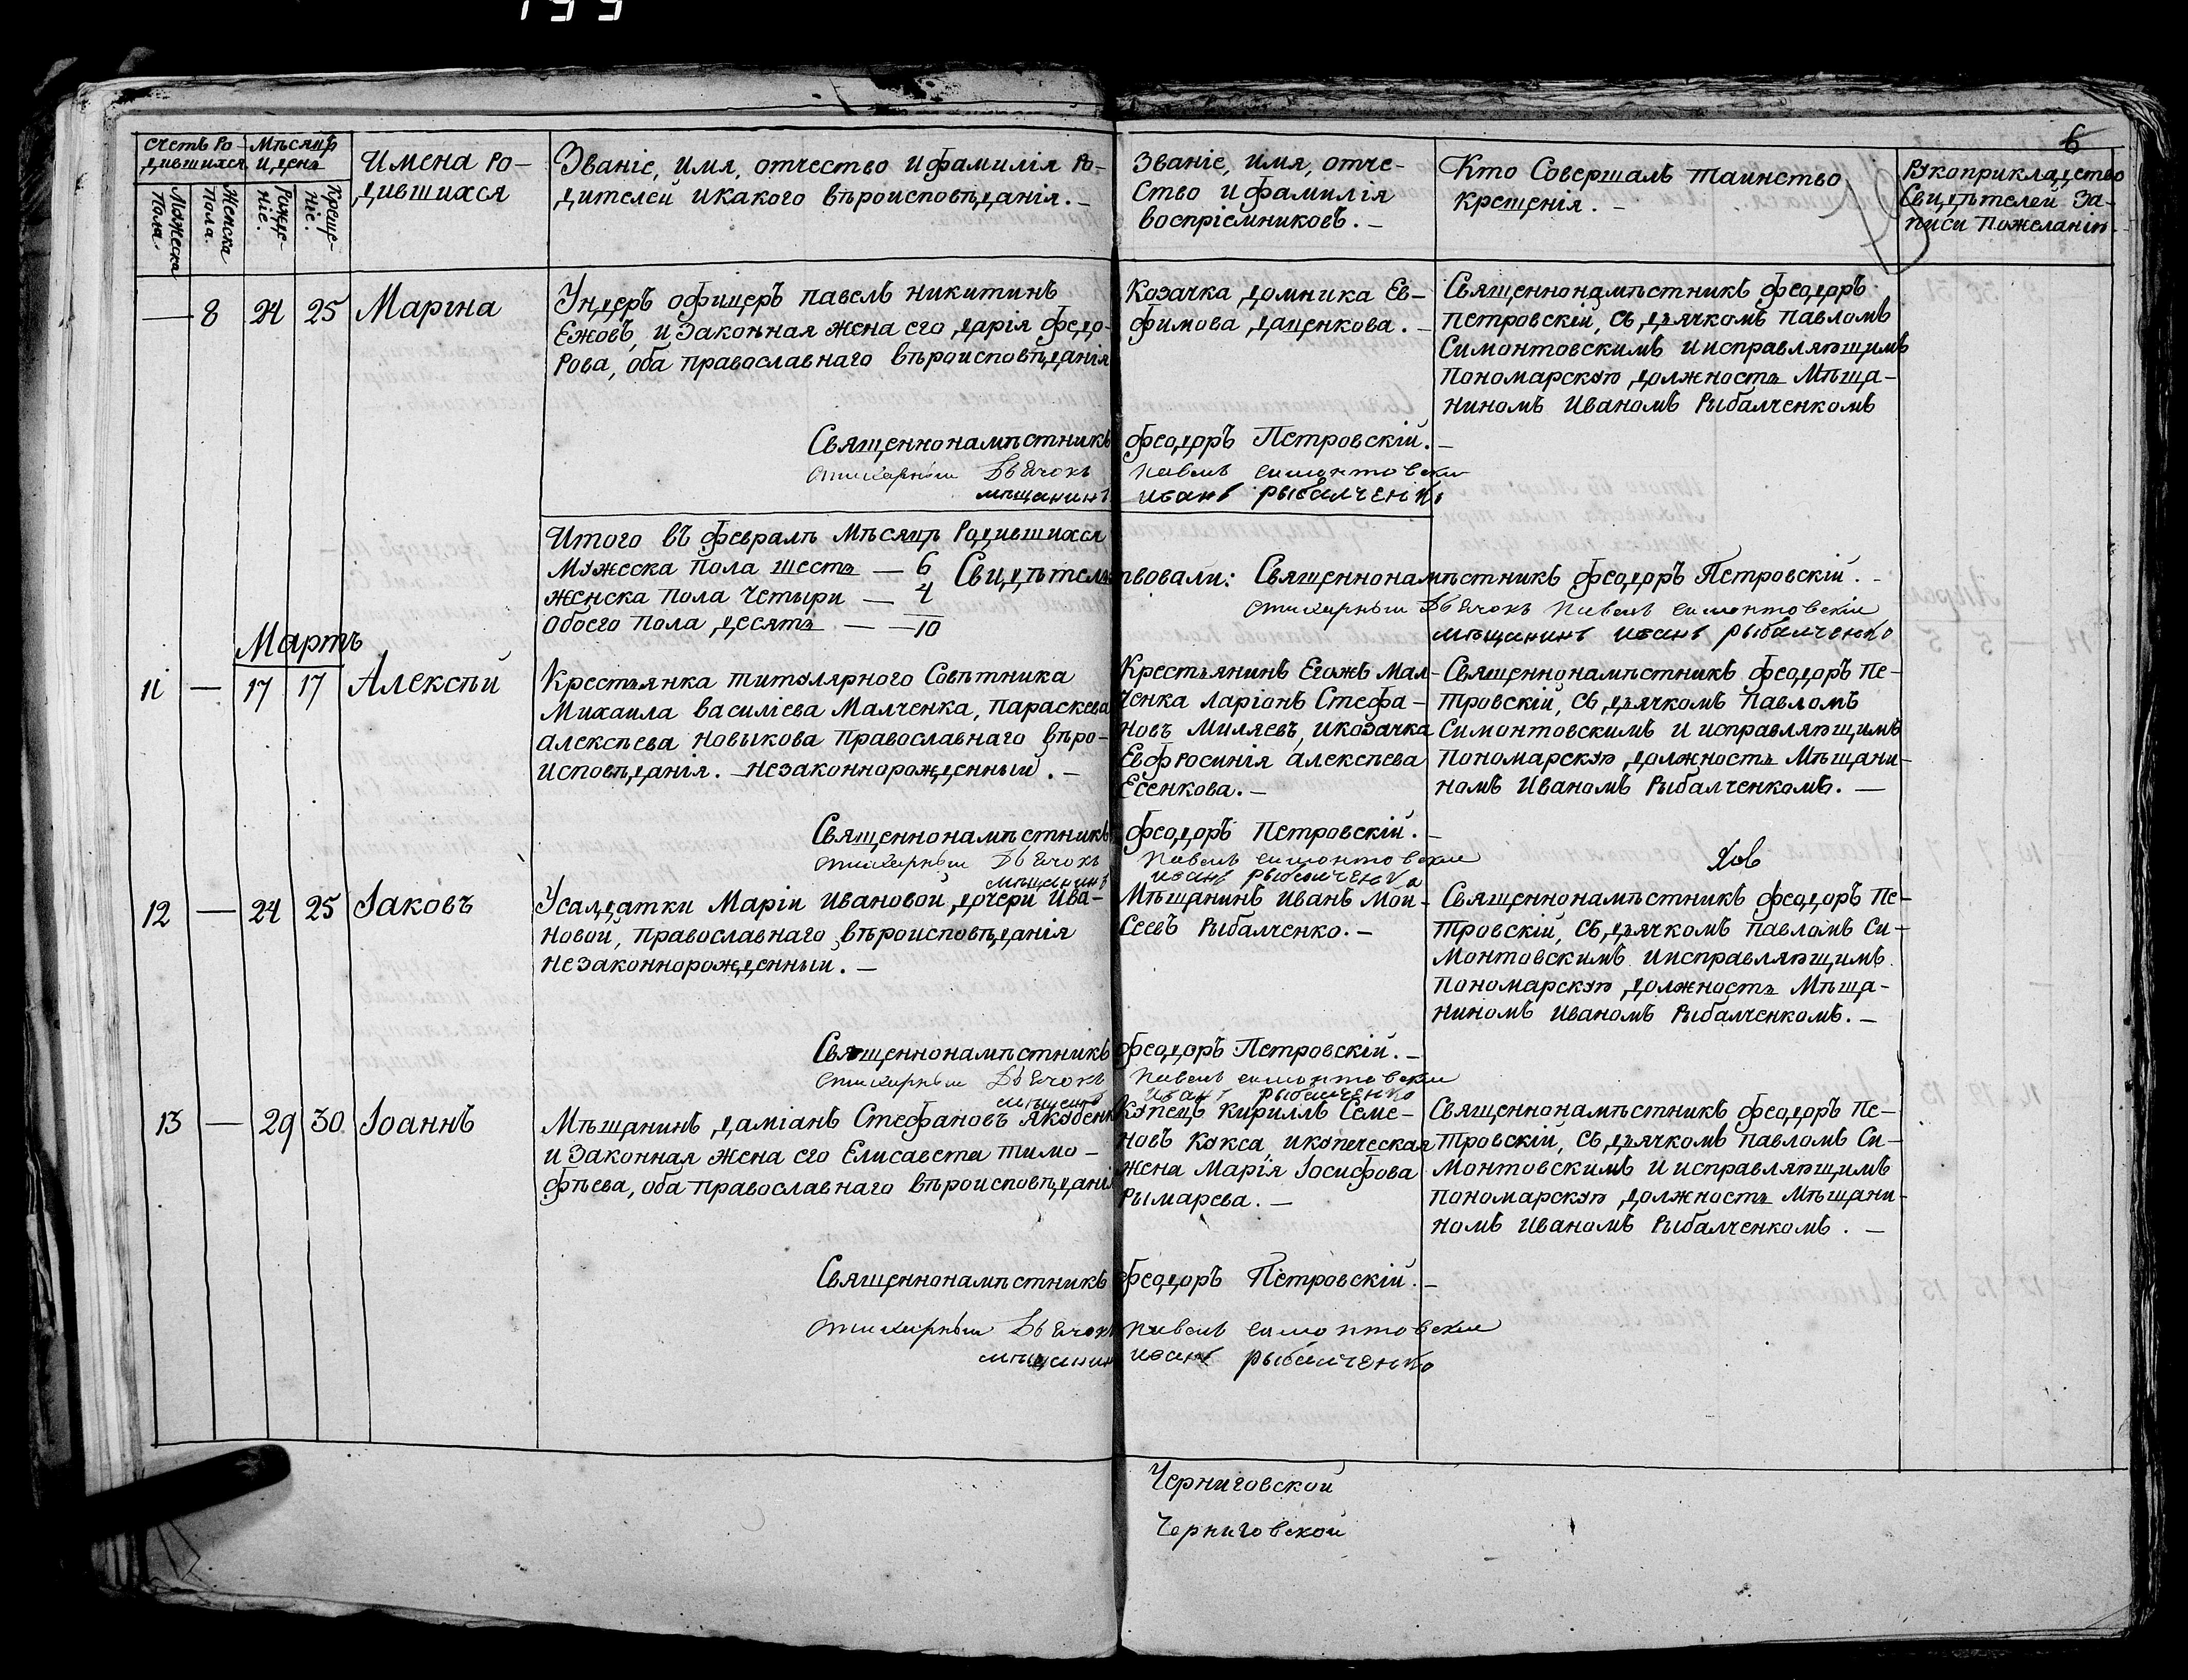 199
6
Счетъ Ро-
дившихся
Мѣсяцъ
и день
Имена Ро-
дившихся
Званіе, имя, отчество и фамилія Ро-
дителей и какого вѣроисповѣданія. —
Званіе, имя, отче-
ство и фамилія
воспріемниковъ. —
Кто Совершалъ таинство
крещенія. —
Рукоприкладство
Свидѣтелей За-
писи пожеланію
Мужеска
Пола.
Женска
Пола.
Рожде-
ніе.
Креще-
ніе.
— 8 24 25 Марина
Ундеръ офицеръ Павелъ Никитинъ
Ежовъ, и Законная жена его Дарія Федо-
рова, оба православнаго вѣроисповѣданія
Козачка Домника Ев-
фимова Даценкова. —
Священнонамѣстникъ Феодоръ
Петровскій, съ дьячкомъ Павломъ
Симонтовскимъ и исправляющимъ
Пономарскую должность Мѣща-
ниномъ Иваномъ Рыбалченкомъ
Священнонамѣстникъ Феодоръ Петровскій. —
Стихарный Дьячокъ Павелъ Симонтовски
мѣщанинъ Иванъ Рыбалченко
Итого въ Февралѣ Мѣсяцѣ Родившихся
Мужеска Пола шесть — 6
Женска Пола Четыри — 4
Обоего Пола десять — 10
Свидѣтельствовали: Священнонамѣстникъ Феодоръ Петровскій. —
Стихарный Дьячокъ Павелъ Симонтовскій
мѣщанинъ Иванъ Рыбалченко
Мартъ
11 — 17 17 Алексѣй
Крестьянка титулярного Совѣтника
Михаила Василіева Малченка, Параскева
Алексѣева Новыкова Православнаго вѣро-
исповѣданія. — Незаконнорожденный. —
Крестьянинъ Егожъ Мал-
ченка Ларіонъ Стефа-
новъ Миляевъ, и козачка
Евфросинія Алексѣева
Есенкова. —
Священнонамѣстникъ Феодоръ Пе-
тровскій, съ дьячкомъ Павломъ
Симонтовскимъ и исправляющимъ
Пономарскую должность Мѣщани-
номъ Иваномъ Рыбалченкомъ. —
Священнонамѣстникъ Феодоръ Петровскій. —
Стихарный Дьячокъ Павелъ Симонтовски
мѣщанинъ Иванъ Рыбалченко
12 — 24 25 Іаковъ
У салдатки Маріи Ивановой дочери Ива-
новой, Православнаго вѣроисповѣданія
Незаконнорожденный. —
Мѣщанинъ Иванъ Мои-
сеевъ Рыбалченко. —
Священнонамѣстникъ Феодоръ Пе-
тровскій, съ дьячкомъ Павломъ Си-
монтовскимъ и исправляющимъ
Пономарскую должность Мѣща-
ниномъ Иваномъ Рыбалченкомъ. —
Священнонамѣстникъ Феодоръ Петровскій. —
Стихарный Дьячокъ Павелъ Симонтовски
мѣщанинъ Иванъ Рыбалченко
13 — 29 30 Іоаннъ
Мѣщанинъ Даміанъ Стефановъ Якубенк
и Законная жена его Елисавета Тимо-
фѣева, оба православнаго вѣроисповѣданія
Купецъ Кириллъ Семе-
новъ Кукса, и купеческая
жена Марія Іосифова
Рымарева. —
Священнонамѣстникъ Феодоръ Пе-
тровскій, съ дьячкомъ Павломъ Си-
монтовскимъ и исправляющимъ
Пономарскую должность Мѣщани-
номъ Иваномъ Рыбалченкомъ. —
Священнонамѣстникъ Феодоръ Петровскій. —
Стихарный Дьячокъ Павелъ Симонтовски
мѣщанинъ Иванъ Рыбалченко
Черниговской
Черниговской